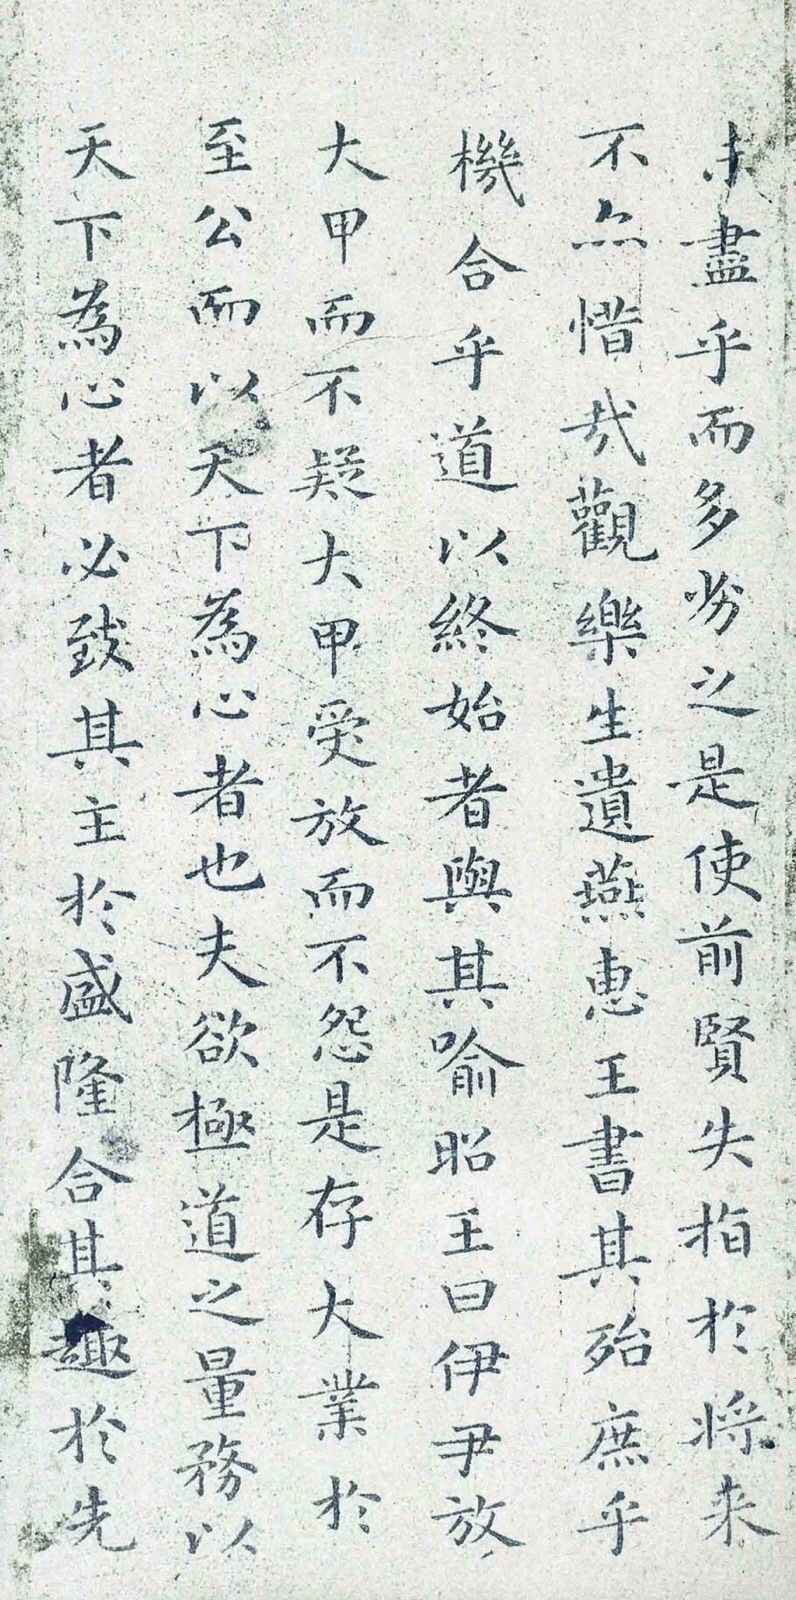 未盡乎而多劣之是使前賢失指於将来
不亦惜哉觀樂生遺燕惠王書其殆庶乎
機合乎道以終始者與其喻昭王曰伊尹放
大甲而不疑大甲受放而不怨是存大業於
至公而以天下為心者也夫欲極道之量務以
天下為心者必致其主於盛隆合其趣於先